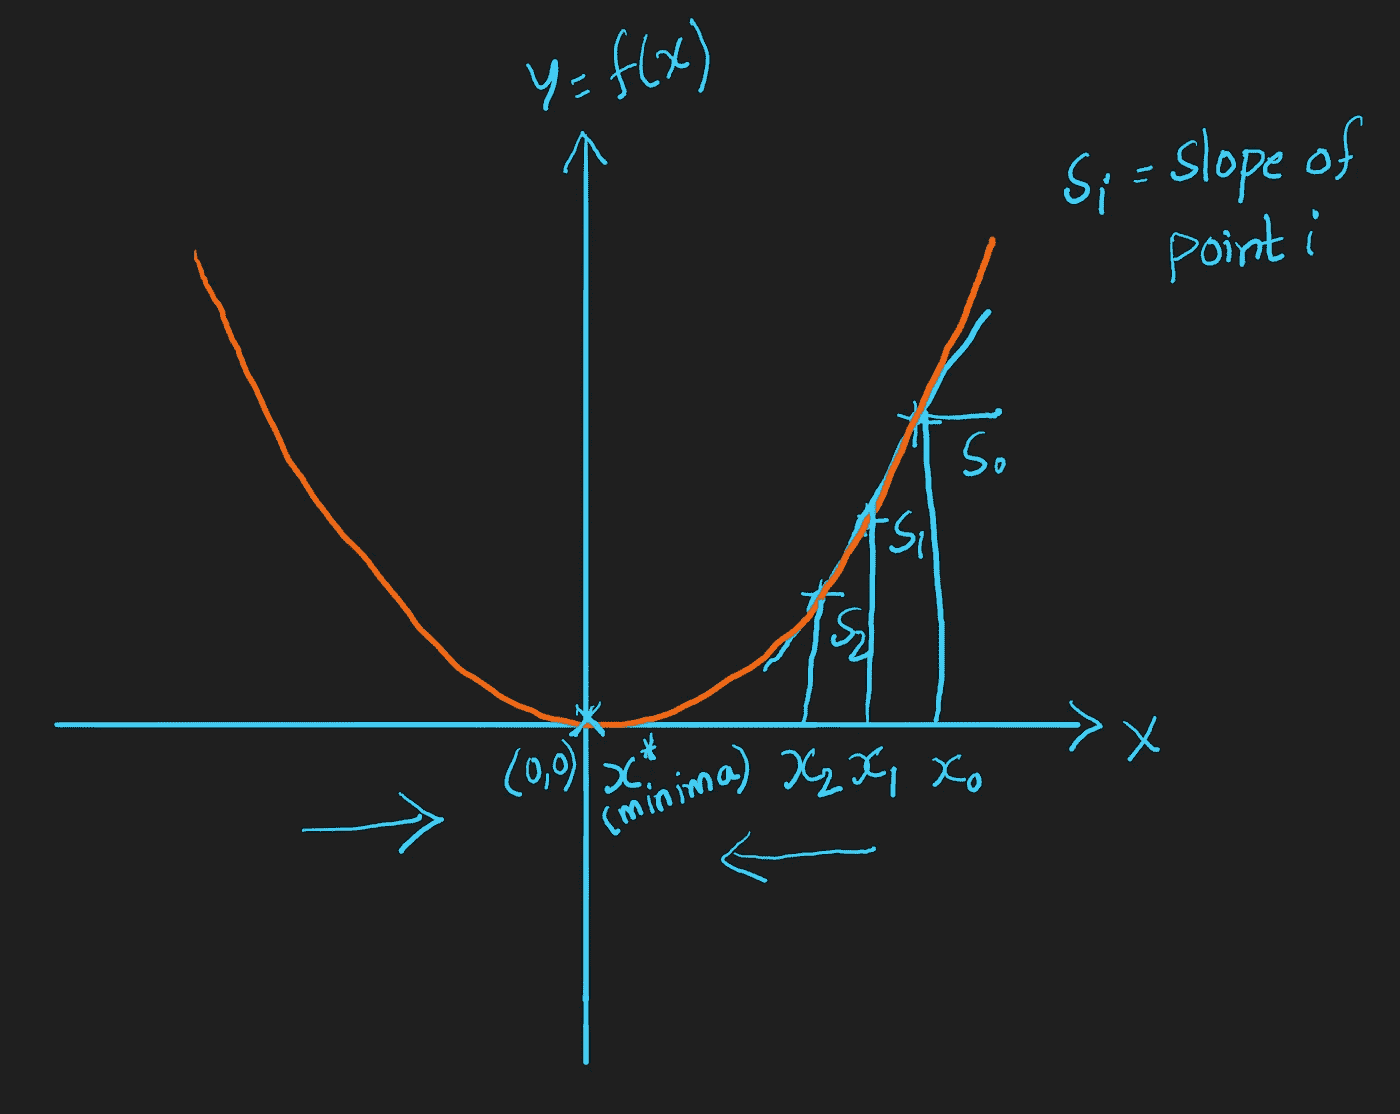 y = f(x)
Si = slope of
point i
S₀
S₁
S₂
X
(0,0)
x* 
(minima)
x₂
x₁
x₀